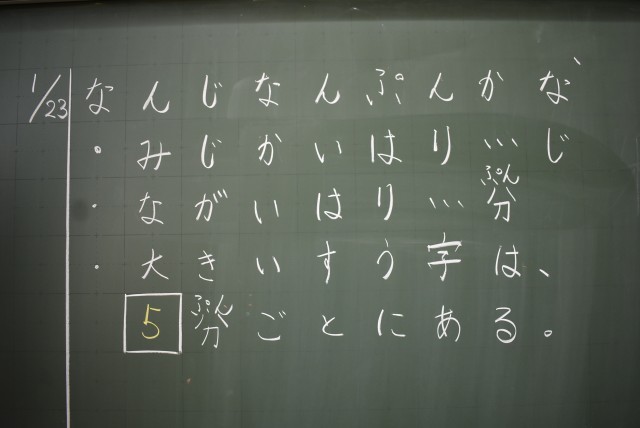 1/23
なんじなんぷんかな
・みじかいはり…じ
・ながいはり…分
ぷん
・大きいすう字は、
5分ごとにある。
ぷん